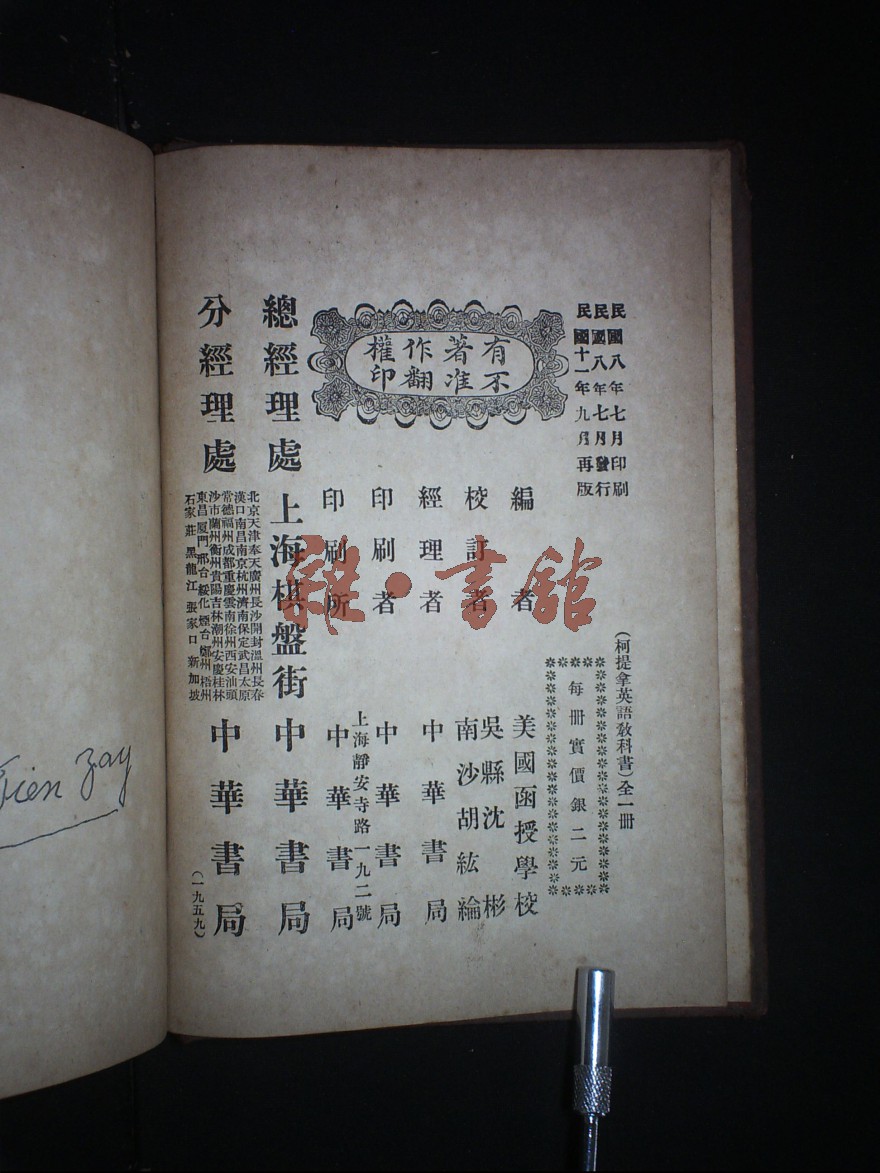 民國八年七月印刷
民國八年七月發行
民國十一年九月再版
(柯提拿英語教科書)全一冊
每冊實價銀二元
有著作權
不准翻印
編者 美國函授學校
校訂者 吳縣沈彬
南沙胡紘綸
經理者 中華書局
印刷者 中華書局
上海靜安寺路一九二號
印刷所 中華書局
總經理處 上海棋盤街 中華書局
分經理處
北京天津奉天廣州長沙開封溫州長春
漢口南昌南京杭州濟南保定武昌太原
常德福州成都重慶雲南徐州西安汕頭
沙市蘭州衡州貴陽吉林潮州安慶桂林
東昌廈門邢台綏化煙台鄭州梧州
石家莊黑龍江張家口新加坡
中華書局
(一九五九)
雜·書館
Fien Zay